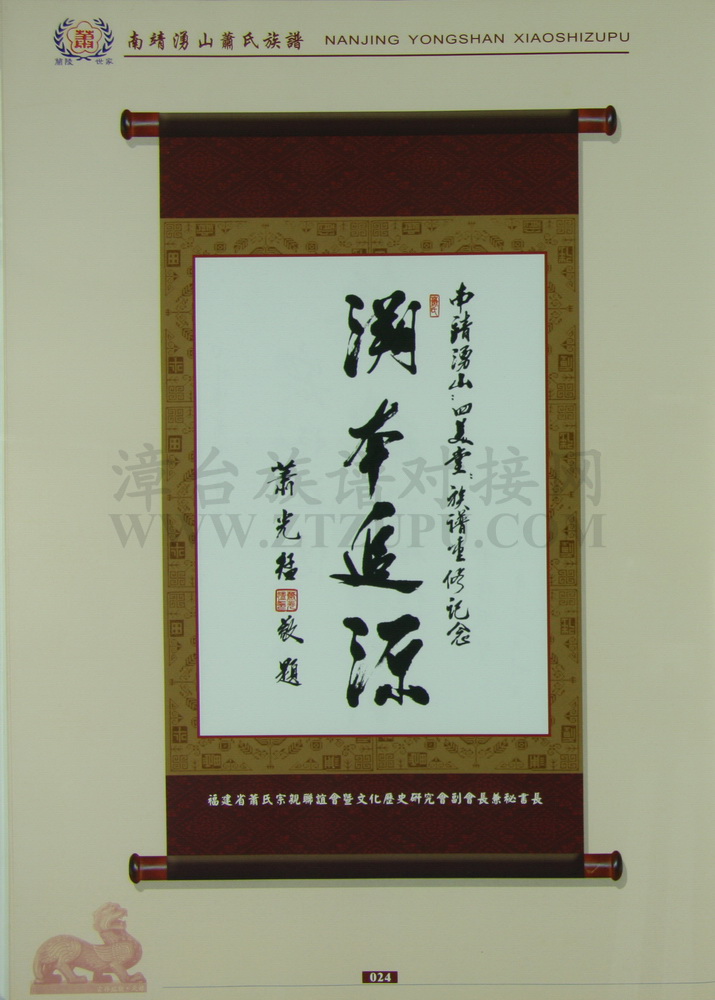 蕭
蘭陵 世家
南靖湧山蕭氏族譜 NANJING YONGSHAN XIAOSHIZUPU
南靖湧山:四美堂:族譜重修記念
溯本追源
蕭光猛
敬題
漳台族谱对接网
WWW.ZTZUPU.COM
福建省蕭氏宗親聯誼會暨文化歷史研究會副會長兼秘書長
024